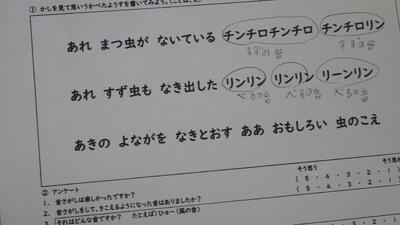 ① かしを見て思いうかべたようすを書いてみよう。(ことば、え)
あれ まつ虫が ないている チンチロチンチロ チンチロリン
すずの音 すずの音
あれ すず虫も なき出した リンリン リンリン リーンリン
べるの音 べるの音 べるの音
あきの よながを なきとおす ああ おもしろい 虫のこえ
② アンケート
そう思う
1. 音さがしは楽しかったですか? (5・4・3・2・1)
2. 音さがしをして、きこえるようになった音はありましたか? (5・4・3・2・1)
3. それはどんな音ですか? たとえば)ひゅー(風の音)